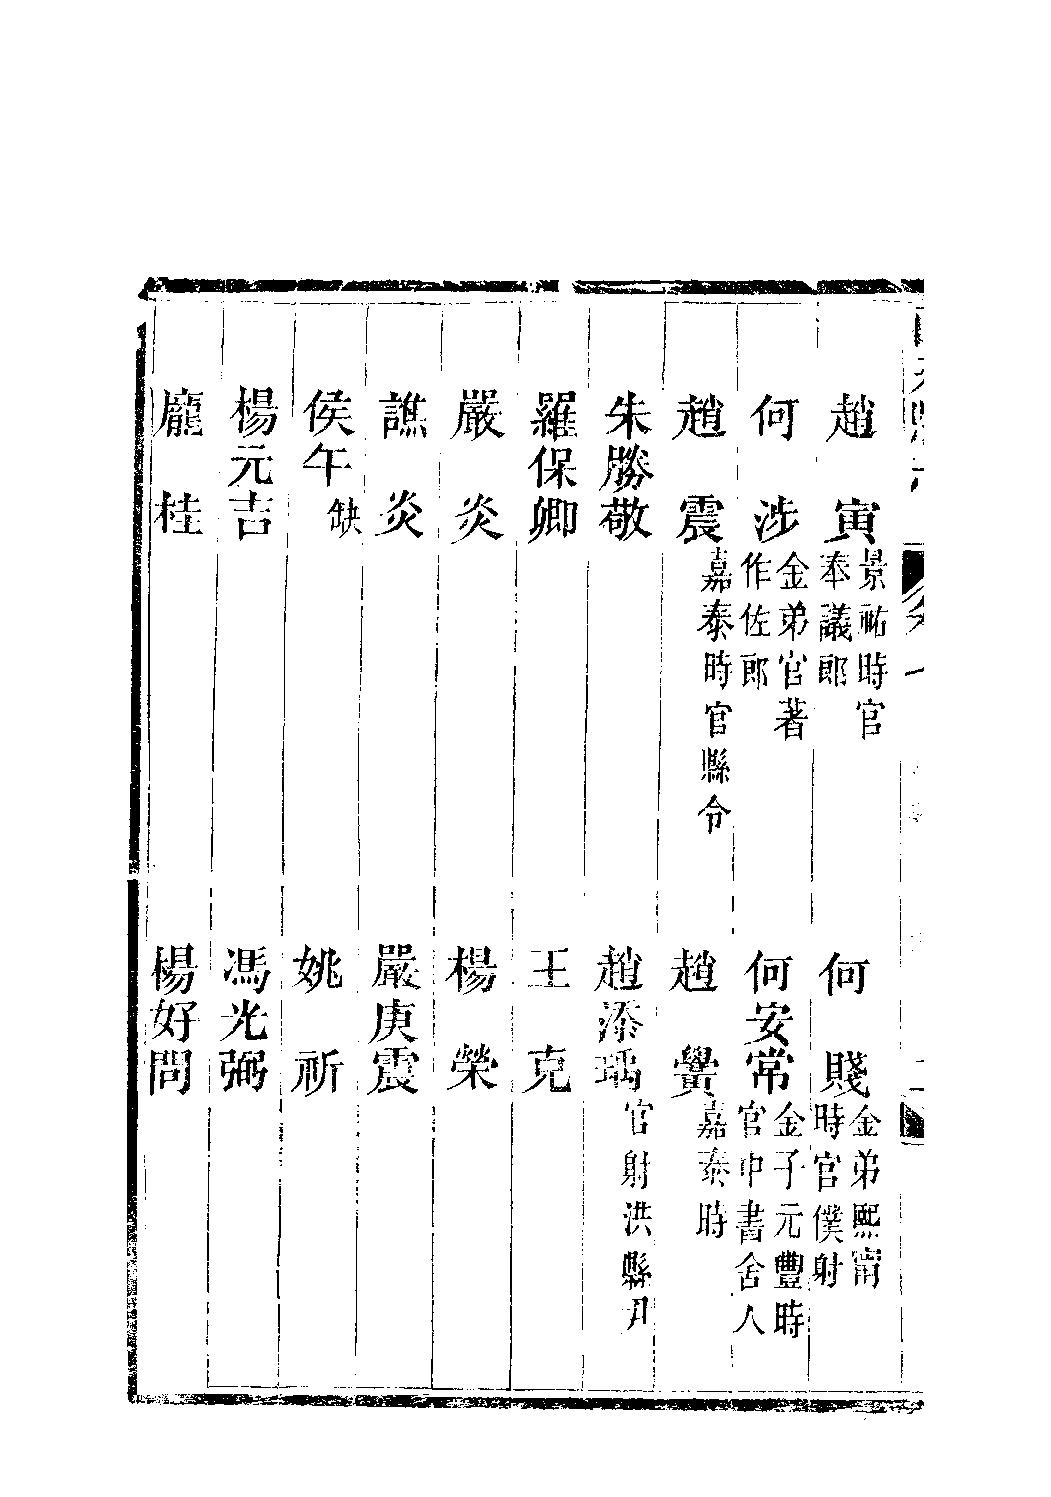 趙寅 景祐時官奉議郎 何賤 金弟熙甯時官僕射
何涉 金弟官著作佐郎 何安常 金子元豐時官中書舍人
趙震 嘉泰時官縣令 趙黌 嘉泰時
朱勝敬 趙添瑀 官射洪縣尹
羅保卿 王克
嚴炎 楊榮
譙炎 嚴庚震
侯午 缺 姚祈
楊元吉 馮光弼
龐桂 楊好問